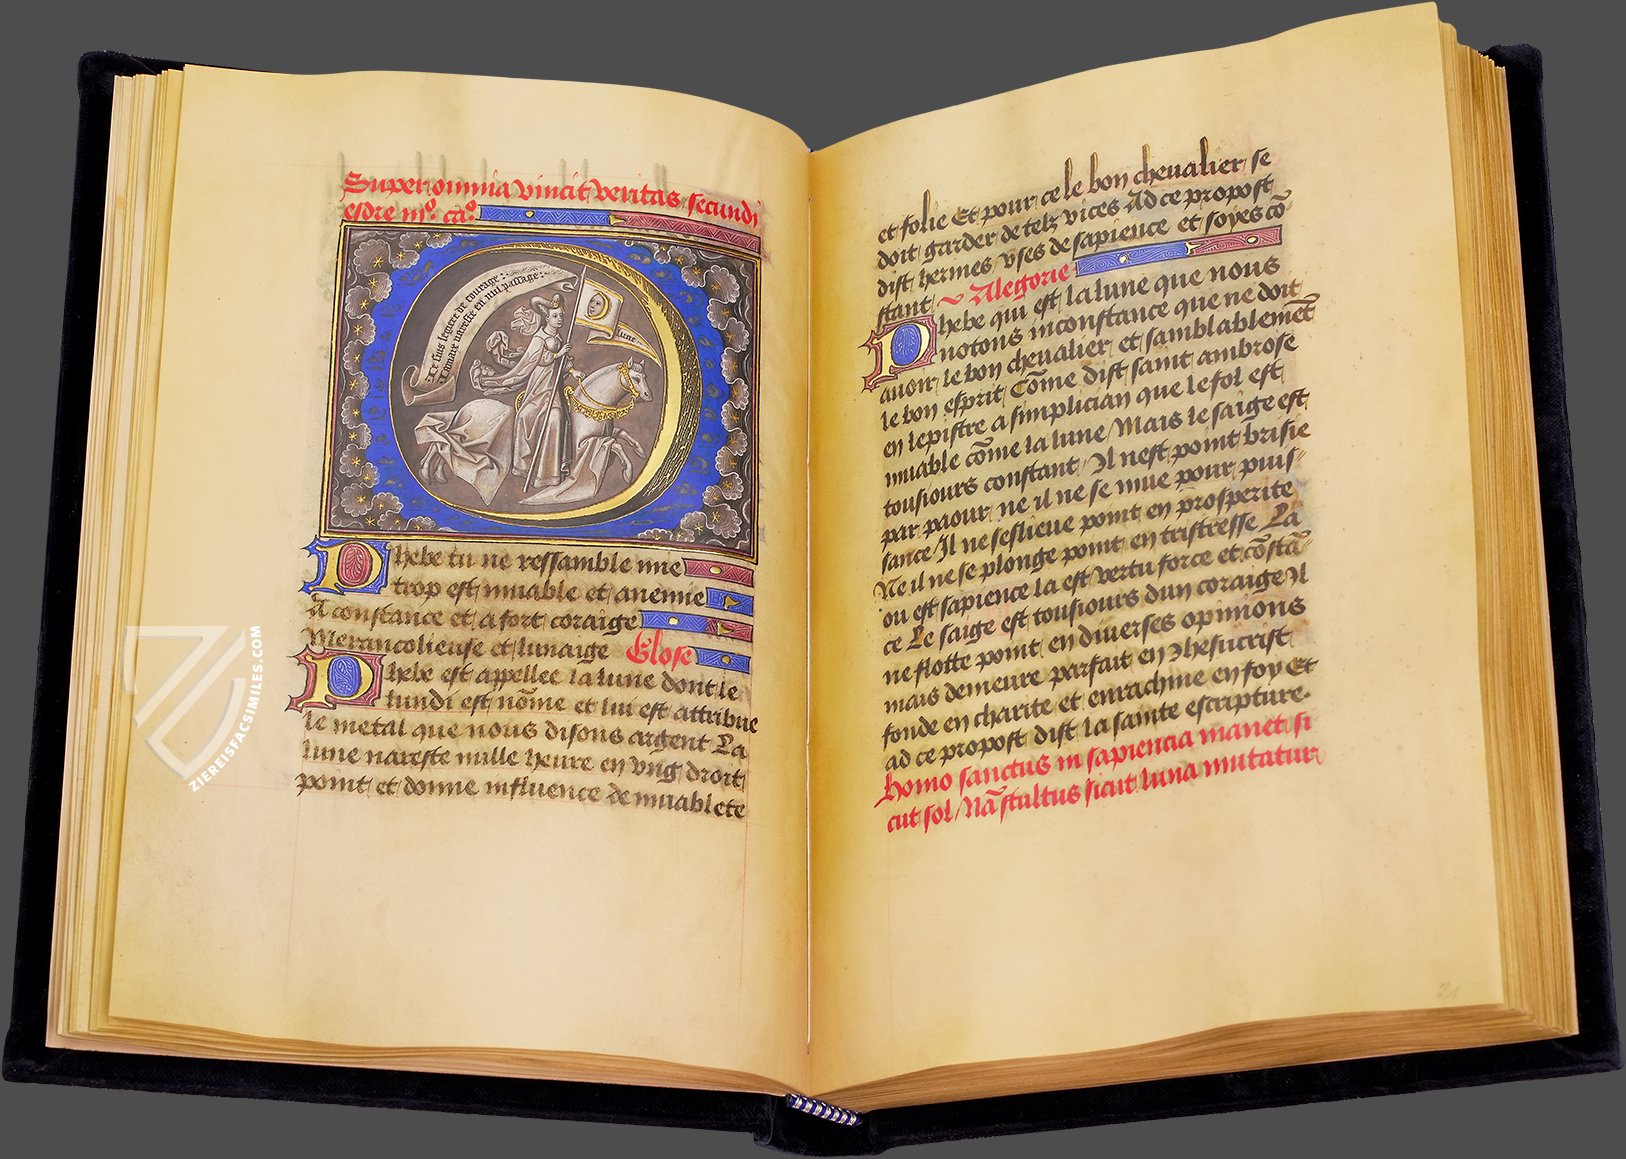 Super omnia vincit veritas secundi
esdre iijº. caº.
Et ce suis legiere de courage
lune
Phebe tu ne ressamble mie
trop est muable et anemie
A constance et a fort coraige
Merancolieuse et lunaige Glose
Phebe est appellee la lune dont le
lundi est nōme et lui est attribue
le metal que nous disons argent La
lune nareste nulle heure en vng droit
point et donne influence de muablete
et folie Et pour ce le bon cheualier se
doit garder de telz vices Ad ce propost
dist hermes vses de sapience et soyes cō
stant Alegorie
Phebe qui est la lune que nous
notons inconstance que ne doit
auoir le bon cheualier et samblablemēt
le bon esprit Cōme dist saint ambrose
en lepistre a simplician que le fol est
muable cōme la lune / Mais le saige est
tousiours constant / Il nest point brisie
par paour ne il ne se mue pour puis-
sance / Il ne seslieue point en prosperite
Ne il ne se plonge point en tristresse La
ou est sapience la est vertu force et cōstā-
ce Le saige est tousiours dun coraige Il
ne flotte point en diuerses opinions
mais demeure parfait en Jhesucrist
fonde en charite et enrachine en foy Et
ad ce propost dist la sainte escripture.
homo sanctus in sapiencia manet si
cut sol / Nā stultus sicut luna mutatur
21
ZIEREISFACSIMILES.COM